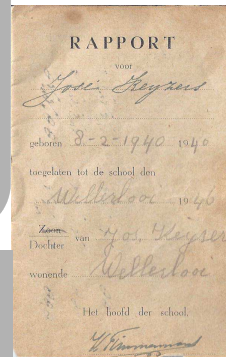 RAPPORT
voor
José Keyzers
geboren 8-2-1940 1940
toegelaten tot de school den
Wellerlooi 1946
Zoon
Dochter van Jos. Keyser
wonende Wellerlooi
Het hoofd der school,